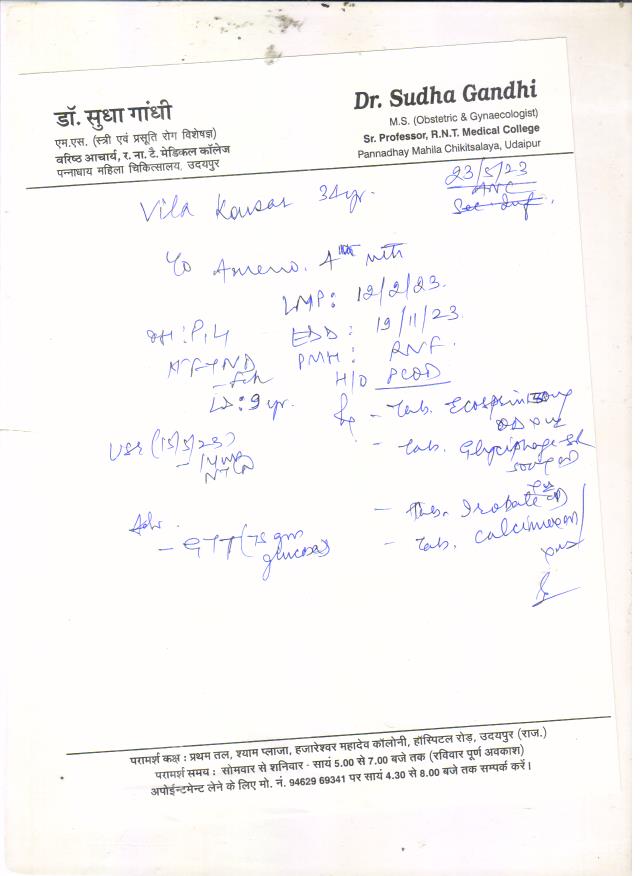 डॉ. सुधा गांधी
एम.एस. (स्त्री एवं प्रसूति रोग विशेषज्ञ)
वरिष्ठ आचार्य, र. ना. टै. मेडिकल कॉलेज
पन्नाधाय महिला चिकित्सालय, उदयपुर
Dr. Sudha Gandhi
M.S. (Obstetric & Gynaecologist)
Sr. Professor, R.N.T. Medical College
Pannadhay Mahila Chikitsalaya, Udaipur
23/5/23
ANC
Vila Kausar 34yr.
Ameno. 4th mth
LMP: 12/2/23.
EDD: 19/11/23.
PMH:
H/O PCOD
OH: P1L1
LD: 9 yr.
USG (15/5/23)
Rx - Tab. Ecosprin 150mg
- Tab. Glyciphage SR
500mg OD
- Tab. Irobate OD
- Tab. Calcimax
Adv.
- GTT (75 gm
glucose)
परामर्श कक्ष : प्रथम तल, श्याम प्लाजा, हजारेश्वर महादेव कॉलोनी, हॉस्पिटल रोड़, उदयपुर (राज.)
परामर्श समय : सोमवार से शनिवार - सायं 5.00 से 7.00 बजे तक (रविवार पूर्ण अवकाश)
अपोईन्टमेन्ट लेने के लिए मो. नं. 94629 69341 पर सायं 4.30 से 8.00 बजे तक सम्पर्क करें।